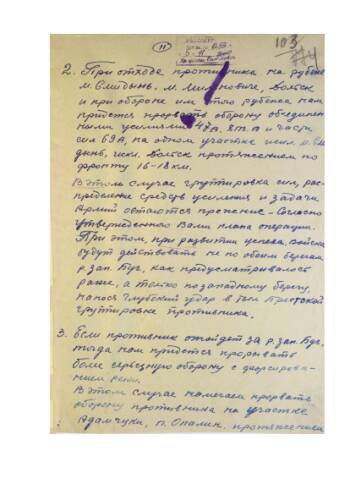 11
103
2. При отходе противника на рубеж
и при обороне им этого рубежа нам
придется прорвать оборону объединен
ными усилиями 47А, 8 гв. А и части
сил 69А, на одном участке
протяжением по
фронту 16-18 км.
В этом случае группировка сил, рас-
пределение средств усиления и задачи
Армий остаются прежние - согласно
утвержденного Вами плана операции.
При этом, при развитии успеха, войска
будут действовать не по обоим берегам
р. зап. Буг, как предусматривалось
раньше, а только по западному берегу,
нанося глубокий удар в тыл Брестской
группировке противника.
3. Если противник отойдет за р. зап. Буг,
тогда нам придется прорывать
более серьезную оборону с форсирова-
нием реки.
В этом случае намечаем прорвать
оборону противника на участке
Адамчуки, п. Опалин, протяжением